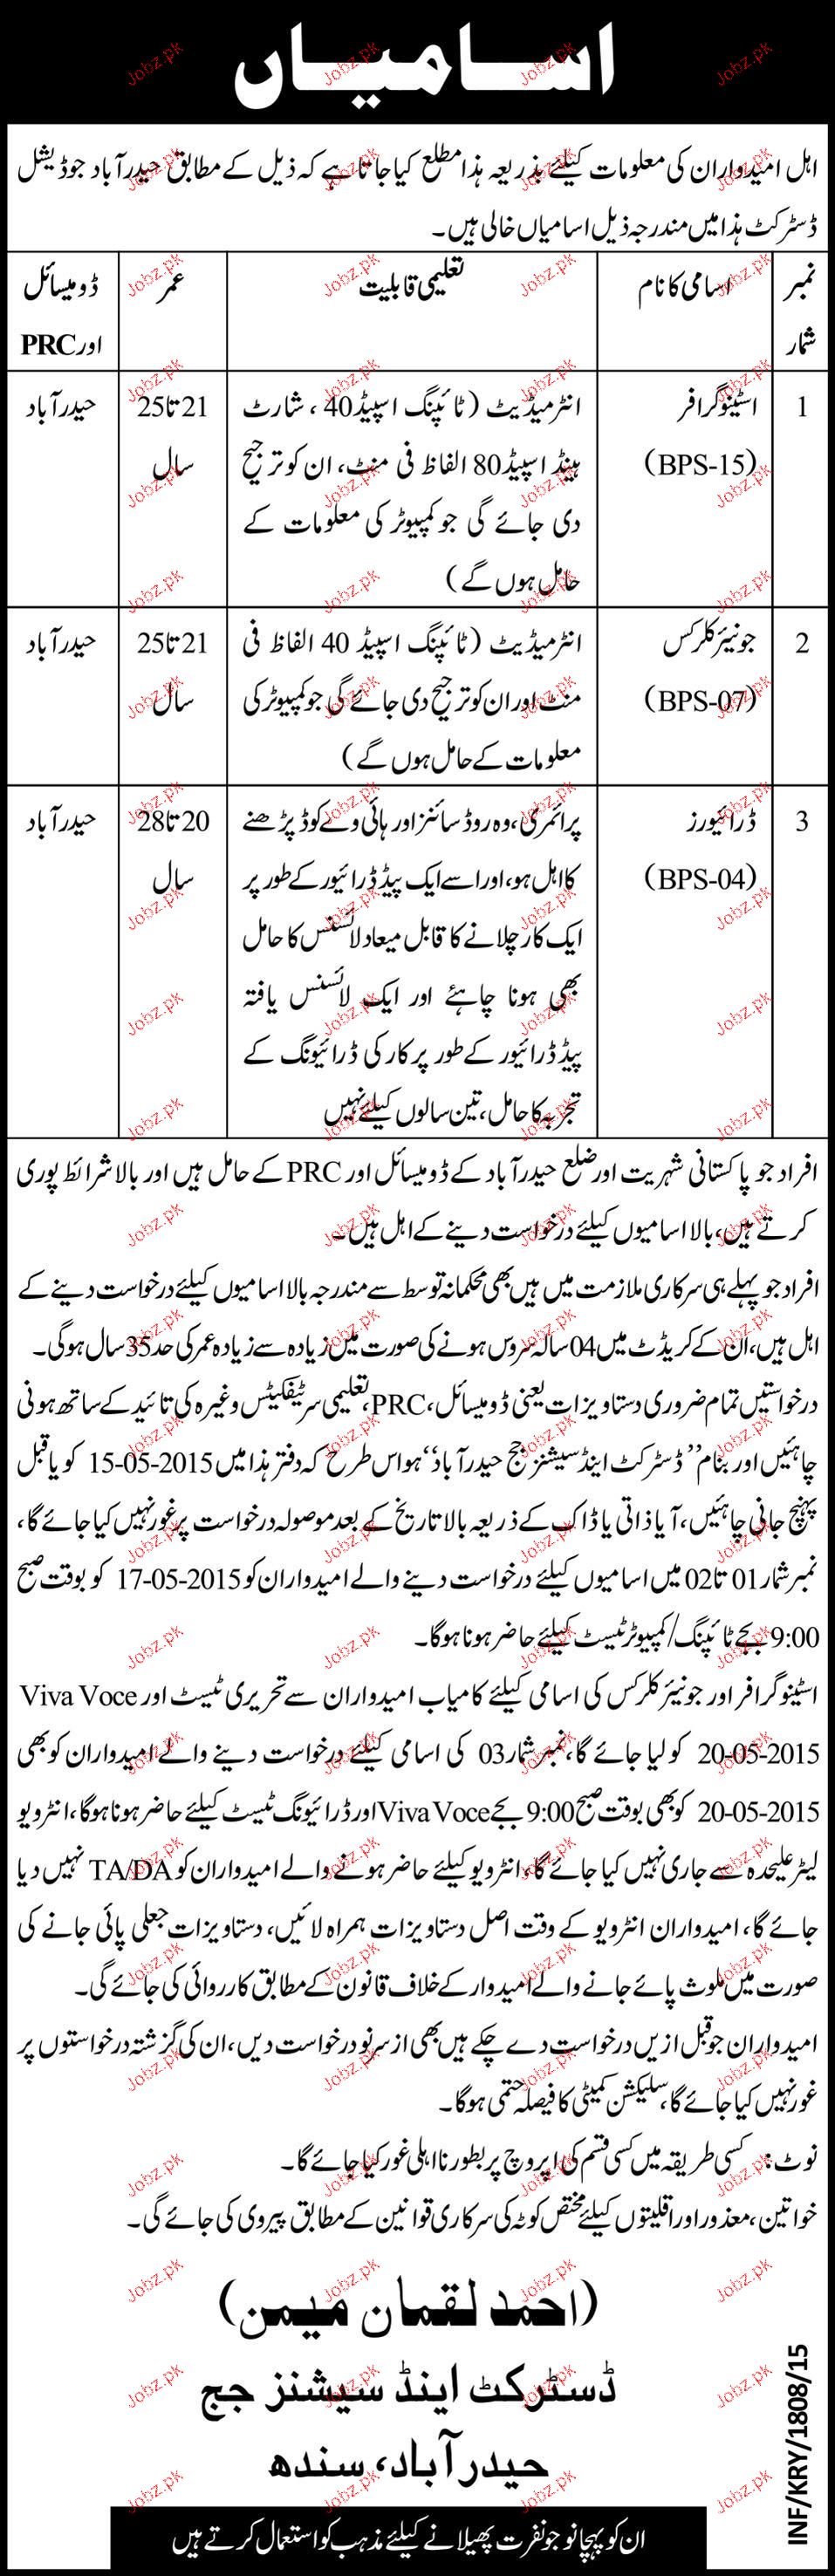 اسامیاں
اہل امیدواران کی معلومات کیلئے بذریعہ ہذا مطلع کیا جاتا ہے کہ ذیل کے مطابق حیدرآباد جوڈیشل
ڈسٹرکٹ ہذا میں مندرجہ ذیل اسامیاں خالی ہیں۔
نمبر شمار
اسامی کا نام
تعلیمی قابلیت
عمر
ڈومیسائل
اور PRC
1
اسٹینوگرافر
(BPS-15)
انٹرمیڈیٹ (ٹائپنگ اسپیڈ 40، شارٹ
ہینڈ اسپیڈ 80 الفاظ فی منٹ، ان کو ترجیح
دی جائے گی جو کمپیوٹر کی معلومات کے
حامل ہوں گے)
21 تا 25
سال
حیدرآباد
2
جونیئر کلرکس
(BPS-07)
انٹرمیڈیٹ (ٹائپنگ اسپیڈ 40 الفاظ فی
منٹ اور ان کو ترجیح دی جائے گی جو کمپیوٹر کی
معلومات کے حامل ہوں گے)
21 تا 25
سال
حیدرآباد
3
ڈرائیورز
(BPS-04)
پرائمری، وہ روڈ سائنز اور ہائی وے کوڈ پڑھنے
کا اہل ہو، اور اسے ایک پیڈ ڈرائیور کے طور پر
ایک کار چلانے کا قابل میعاد لائسنس کا حامل
بھی ہونا چاہئے اور ایک لائسنس یافتہ
پیڈ ڈرائیور کے طور پر کار کی ڈرائیونگ کے
تجربہ کا حامل، تین سالوں کیلئے نہیں
20 تا 28
سال
حیدرآباد
افراد جو پاکستانی شہریت اور ضلع حیدرآباد کے ڈومیسائل اور PRC کے حامل ہیں اور بالا شرائط پوری
کرتے ہیں، بالا اسامیوں کیلئے درخواست دینے کے اہل ہیں۔
افراد جو پہلے ہی سرکاری ملازمت میں ہیں بھی محکمانہ توسط سے مندرجہ بالا اسامیوں کیلئے درخواست دینے کے
اہل ہیں، ان کے کریڈٹ میں 04 سالہ سروس ہونے کی صورت میں زیادہ سے زیادہ عمر کی حد 35 سال ہوگی۔
درخواستیں تمام ضروری دستاویزات یعنی ڈومیسائل، PRC، تعلیمی سرٹیفکیٹس وغیرہ کی تائید کے ساتھ ہونی
چاہئیں اور بنام ”ڈسٹرکٹ اینڈ سیشنز جج حیدرآباد“ ہو اس طرح کہ دفتر ہذا میں 15-05-2015 کو یا قبل
پہنچ جانی چاہئیں، آیا ذاتی یا ڈاک کے ذریعہ بالا تاریخ کے بعد موصولہ درخواست پر غور نہیں کیا جائے گا،
نمبر شمار 01 تا 02 میں اسامیوں کیلئے درخواست دینے والے امیدواران کو 17-05-2015 کو بوقت صبح
9:00 بجے ٹائپنگ/کمپیوٹر ٹیسٹ کیلئے حاضر ہونا ہوگا۔
اسٹینوگرافر اور جونیئر کلرکس کی اسامی کیلئے کامیاب امیدواران سے تحریری ٹیسٹ اور Viva Voce
20-05-2015 کو لیا جائے گا، نمبر شمار 03 کی اسامی کیلئے درخواست دینے والے امیدواران کو بھی
20-05-2015 کو بھی بوقت صبح 9:00 بجے Viva Voce اور ڈرائیونگ ٹیسٹ کیلئے حاضر ہونا ہوگا، انٹرویو
لیٹر علیحدہ سے جاری نہیں کیا جائے گا، انٹرویو کیلئے حاضر ہونے والے امیدواران کو TA/DA نہیں دیا
جائے گا، امیدواران انٹرویو کے وقت اصل دستاویزات ہمراہ لائیں، دستاویزات جعلی پائی جانے کی
صورت میں ملوث پائے جانے والے امیدوار کے خلاف قانون کے مطابق کارروائی کی جائے گی۔
امیدواران جو قبل ازیں درخواست دے چکے ہیں بھی از سر نو درخواست دیں، ان کی گزشتہ درخواستوں پر
غور نہیں کیا جائے گا، سلیکشن کمیٹی کا فیصلہ حتمی ہوگا۔
نوٹ: کسی طریقہ میں کسی قسم کی اپروچ پر بطور نااہلی غور کیا جائے گا۔
خواتین، معذور اور اقلیتوں کیلئے مختص کوٹہ کی سرکاری قوانین کے مطابق پیروی کی جائے گی۔
(احمد لقمان میمن)
ڈسٹرکٹ اینڈ سیشنز جج
حیدرآباد، سندھ
INF/KRY/1808/15
ان کو پہچانو جو نفرت پھیلانے کیلئے مذہب کو استعمال کرتے ہیں
Jobz.pk